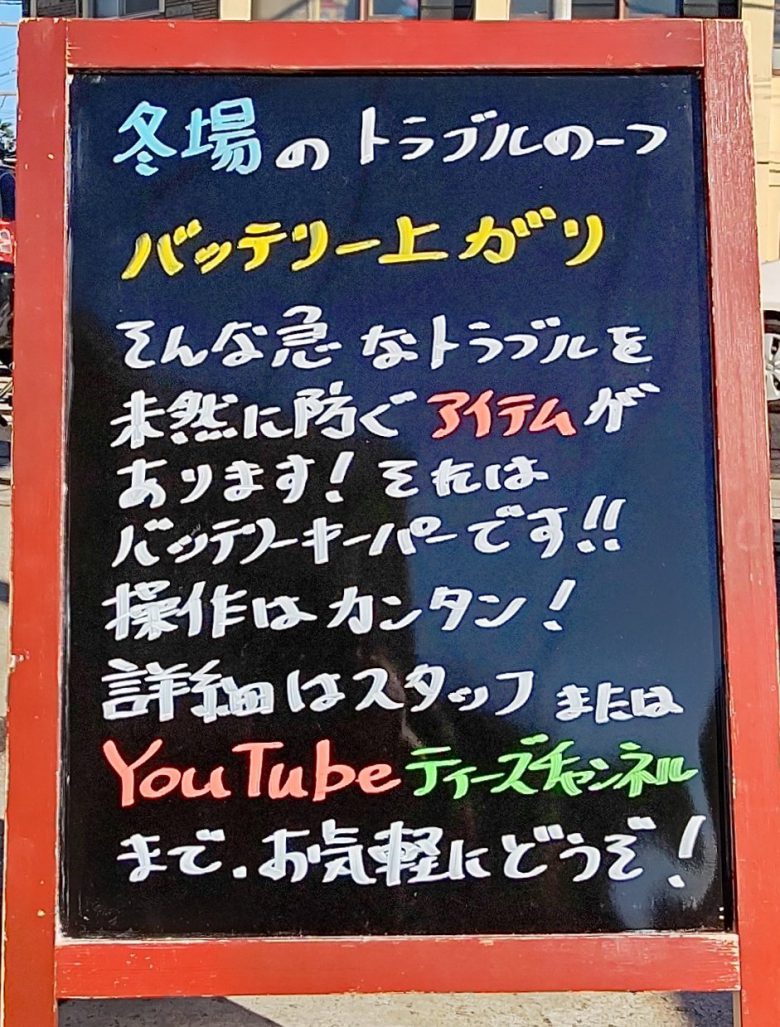 冬場のトラブルの一つ
バッテリー上がり
そんな急なトラブルを
未然に防ぐアイテムが
あります!それは
バッテリーキーパーです!!
操作はカンタン!
詳細はスタッフまたは
YouTubeティーズチャンネル
まで、お気軽にどうぞ!